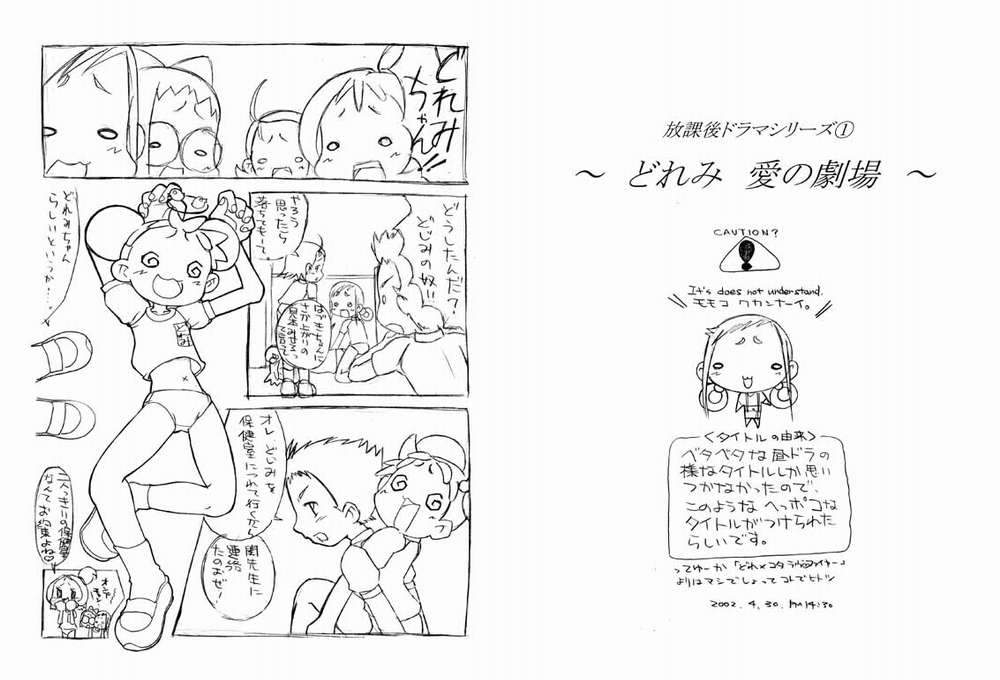 放課後ドラマシリーズ①
～ どれみ 愛の劇場 ～
CAUTION?
!
It's does not understand.
モモコ ワカンナーイ。
＜タイトルの由来＞
ベタベタな昼ドラの
様なタイトルしか思い
つかなかったので、
このような ヘッポコな
タイトルがつけられた
らしいです。
よりはマシでしょってコトでヒトツ
2002. 4. 30.
どれみ
ちゃん!!
どうしたんだ?
どじみの奴!!
はづきちゃんに
さか上がりの
見本みせるっ
て言って
やろう
思ったら
落ちてもーて
どれみちゃん
らしいといっつか…
オレ、どじみを
保健室につれて行くから
関先生に
連絡
たのむぜ!
二人っきりの保健室
なんてお約束よね♡